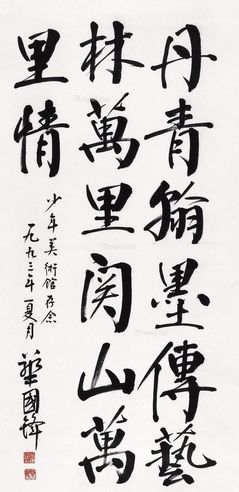 丹青翰墨傳藝
林萬里関山萬
里情
少年美術館存念
一九九三年夏月
華國鋒